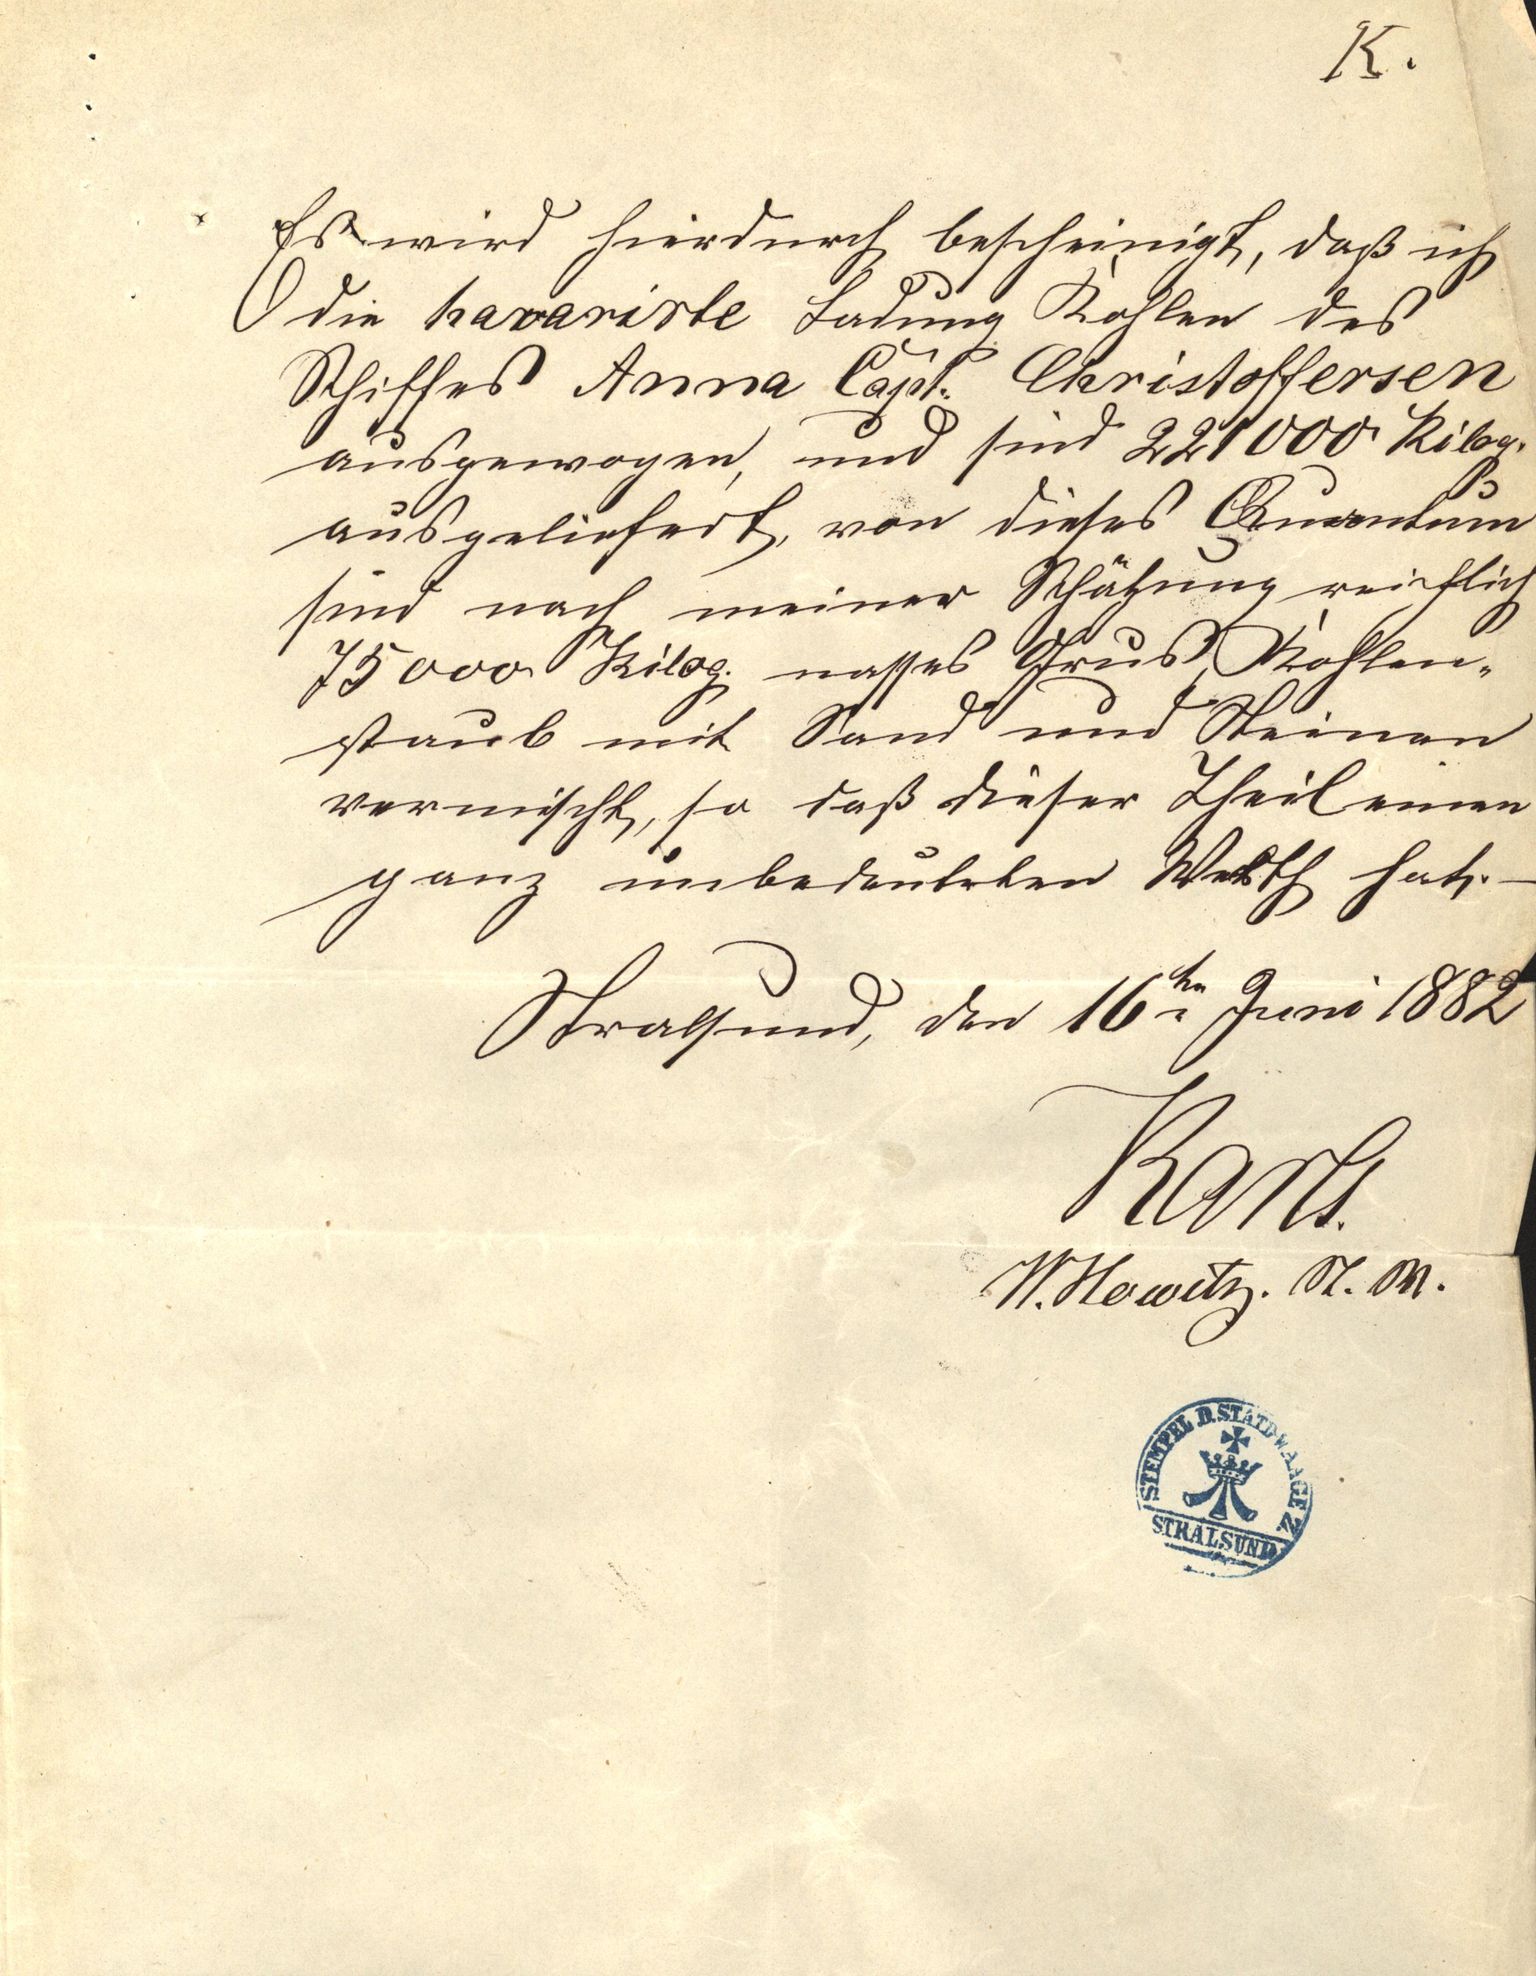 K.
Es wird hierdurch bescheinigt, daß ich
die havarirte Ladung Kohlen des
Schiffes Anna Capt. Christoffersen
ausgewogen, und sind 221000 Kilog.
ausgeliefert, von dieses Quantum
sind nach meiner Schätzung reichlich
75000 Kilog. nasses Grus, Kohlen-
staub mit Sand und Steinen
vermischt, so daß dieser Theil einen
ganz unbedeuteten Werth hat. —
Stralsund, den 16ten Juni 1882
W. Howitz. St. W.
STEMPEL D. STADTWAAGE Z
STRALSUND